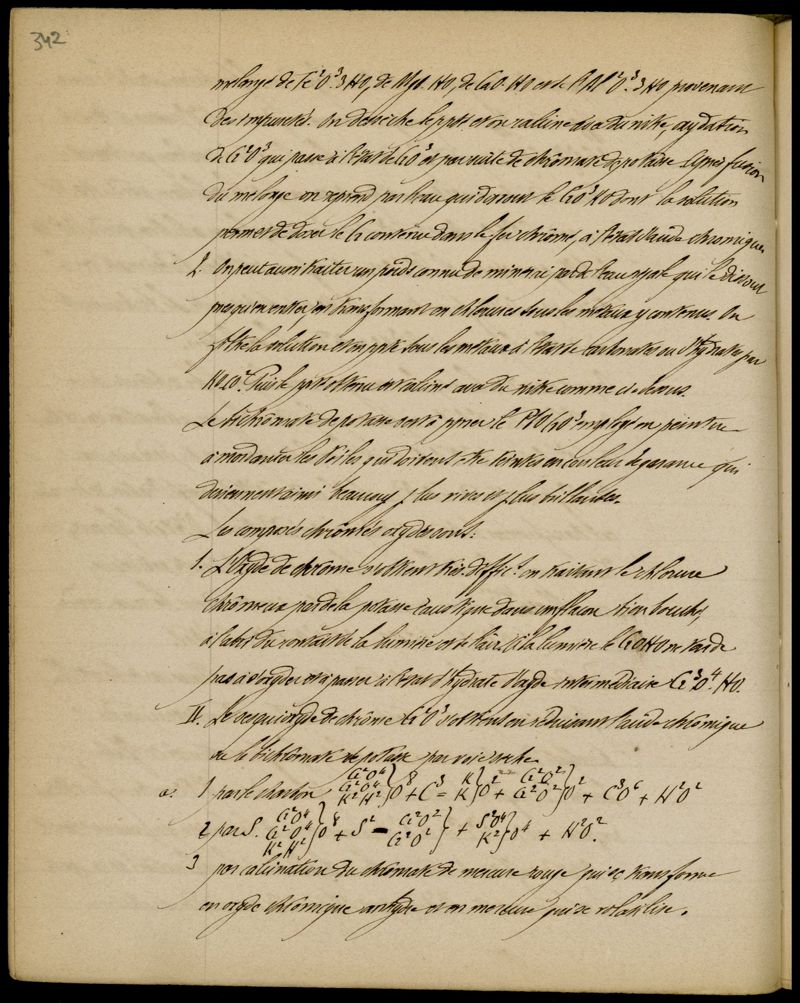 342
mélangé de Fe²O³ 3HO, de MgO. HO, de CaO. HO et de Al²O³. 3HO provenant
des impuretés. On dessèche le ppté et on calcine avec du nitre, oxydation
de Cr²O³ qui passe à l'état de CrO³ et par suite de chrômate de potasse. Après fusion
du mélange on reprend par l'eau qui dissout le CrO³ KO dont la solution
permet de doser le Cr contenu dans le fer chrômé, à l'état d'acide chromique.
2. On peut aussi traiter un poids connu de minerai par de l'eau régale qui le dissout
presqu'en entier en transformant en chlorures tous les métaux y contenus. On
filtre la solution et on ppte tous les métaux à l'état de carbonates ou d'hydrates par
KO.CO². Puis le ppté obtenu est calciné avec du nitre comme ci-dessus.
Le bichrômate de potasse sert à pprer le PbO CrO³ employé en peinture
à mordancer les étoiles qui doivent être teintes en couleur de garance qui
deviennent ainsi beaucoup plus rives et plus brillantes.
Les composés chrômés oxydés sont:
1. L'Oxyde de chrôme s'obtient très diffict. en traitant le chlorure
chrômeux par de la potasse caustique dans un flacon bien bouché,
à l'abri du contact de la lumière et de l'air. À la lumière le CrO HO ne tarde
pas à s'oxyder et à passer à l'état d'hydrate d'oxyde intermédiaire Cr³O⁴. HO.
II. Le sesquioxyde de chrôme Cr²O³ s'obtient en réduisant l'acide chrômique
ou le bichromate de potasse par voie sèche
a. 1 par le charbon Cr²O⁴ Cr²O⁴ K²H² } O⁸ + C³ = K K } O² + Cr²O² Cr²O² } O² + C³O⁶ + H²O²
2 par S. Cr²O⁴ Cr²O⁴ K²H² } O⁸ + S² = Cr²O² Cr²O² } + S²O⁴ K² } O⁴ + H²O².
3 par calcination du chrômate de mercure rouge qui se transforme
en oxyde chrômique anhydre et en mercure qui se volatilise.